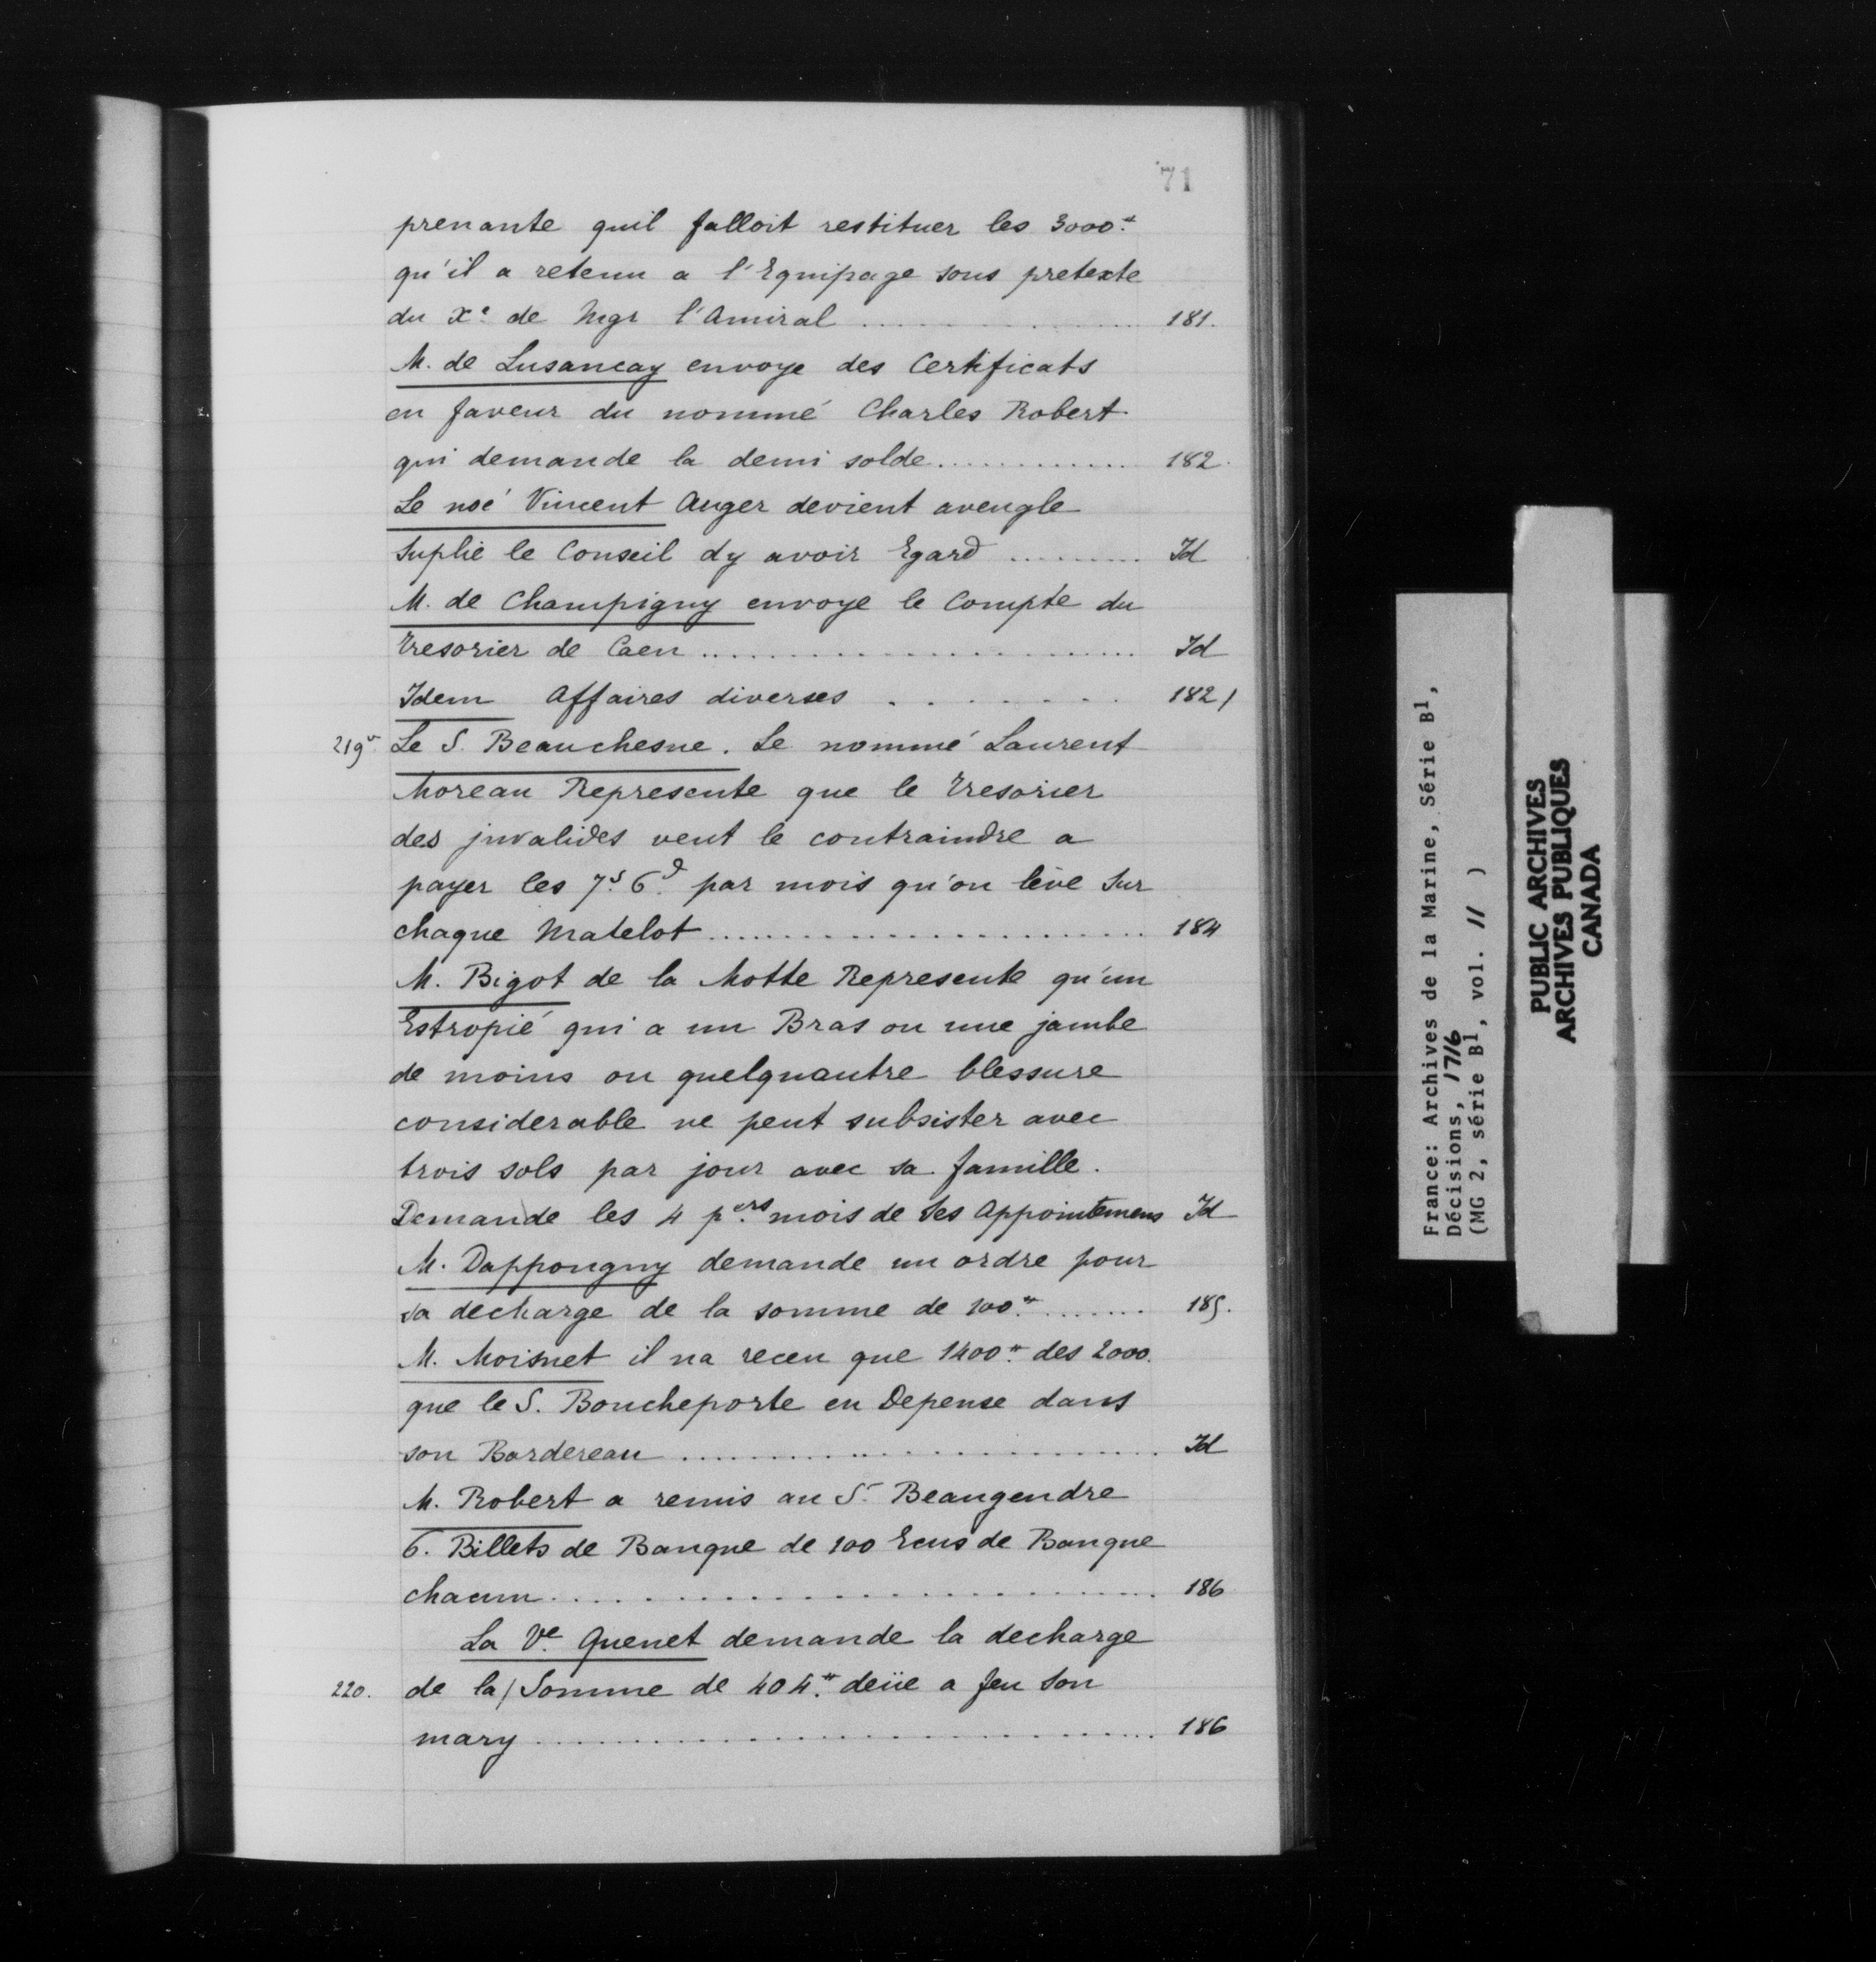 71
prenante quil falloit restituer les 3000.#
qu'il a retenu a l'Equipage sous pretexte
du Xe de Mgr l'Amiral .................... 181.
M. de Lusancay envoye des Certificats
en faveur du nommé Charles Robert
qui demande la demi solde ............. 182.
Le noé Vincent Auger devient aveugle
Suplie le Conseil dy avoir Egard ......... Id
M. de Champigny envoye le Compte du
Tresorier de Caen ..................... Id
Idem Affaires diverses ........ 182/
219v. Le S. Beauchesne. Le nommé Laurent
Moreau Represente que le Tresorier
des jnvalides veut le contraindre a
payer les 7s. 6d. par mois qu'on lève Sur
chaque Matelot ....................... 184
M. Bigot de la Motte Represente qu'un
Estropié qui a un Bras ou une jambe
de moins ou quelquautre blessure
considerable ne peut subsister avec
trois sols par jour avec sa famille.
Demande les 4 p.ers mois de Ses Appointemens Id
M. Dappougny demande un ordre pour
sa decharge de la somme de 100.# ....... 185.
M. Moisnet il na receu que 1400.# des 2000.
que le S. Boucheporte en Depense dans
son Bordereau ....................... Id
M. Robert a remis au Sr Beaugendre
6. Billets de Banque de 100 Ecus de Banque
chacun ....................... 186
La Ve. Quenet demande la decharge
220. de la / Somme de 404.# deüe a feu Son
mary ........................... 186
France: Archives de la Marine, Série B1,
Décisions, 1716
(MG 2, série B1, vol. 11 )
PUBLIC ARCHIVES
ARCHIVES PUBLIQUES
CANADA